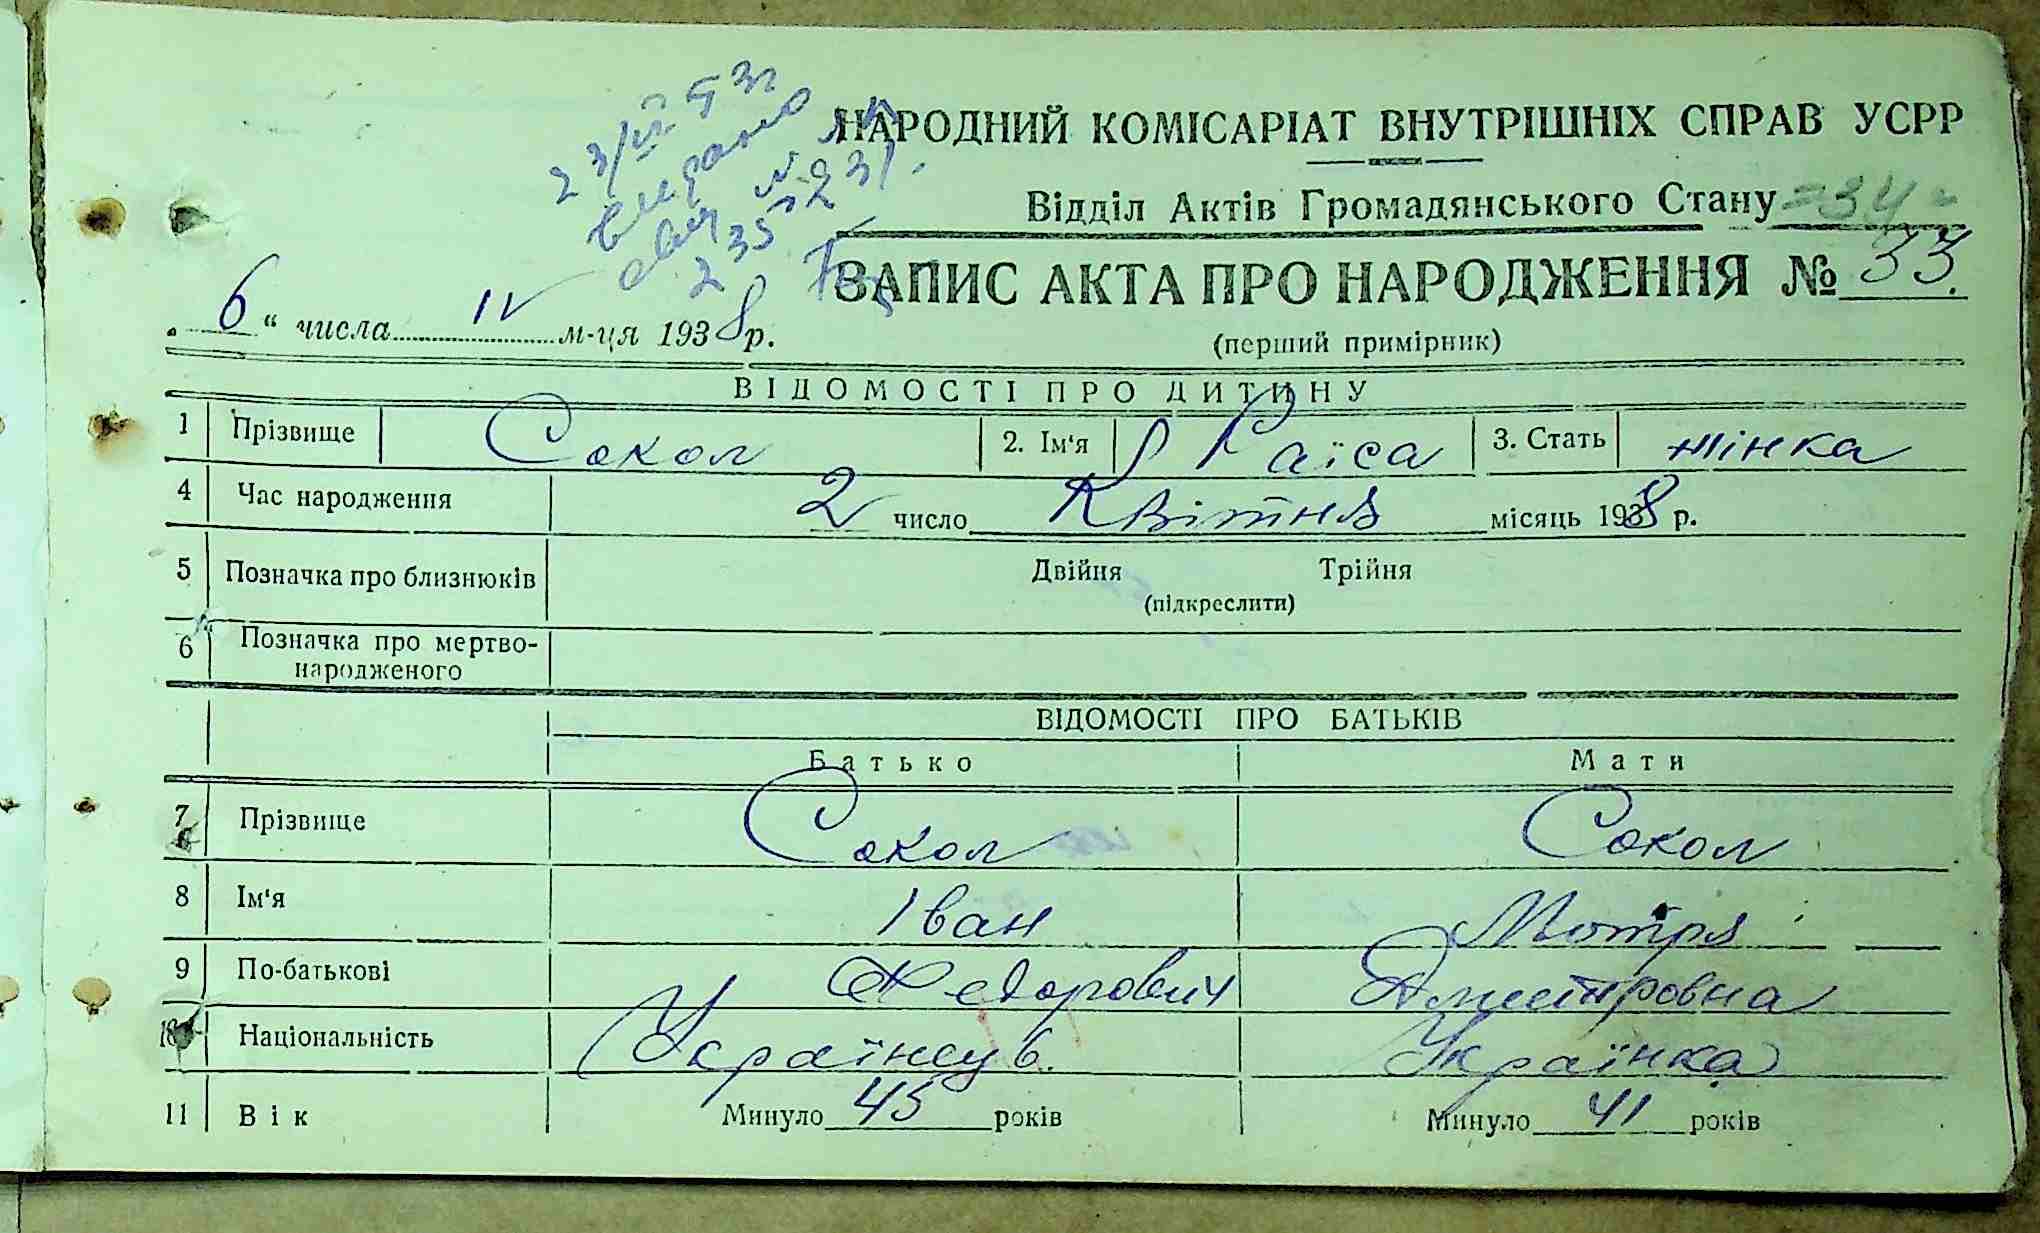 23/VI 53г
НАРОДНИЙ КОМІСАРІАТ ВНУТРІШНІХ СПРАВ УСРР
Відділ Актів Громадянського Стану =34=
ЗАПИС АКТА ПРО НАРОДЖЕННЯ № 33.
(перший примірник)
„ 6 “ числа IV м-ця 1938 р.
ВІДОМОСТІ ПРО ДИТИНУ
1 Прізвище Сокол 2. Ім‘я Раїса 3. Стать жінка
4 Час народження 2 число Квітня місяць 1938 р.
5 Позначка про близнюків Двійня Трійня
(підкреслити)
6 Позначка про мертво-
народженого
ВІДОМОСТІ ПРО БАТЬКІВ
Батько Мати
7 Прізвище Сокол Сокол
8 Ім‘я Іван Мотря
9 По-батькові Федорович Дмитровна
10 Національність Українець Українка
11 Вік Минуло 45 років Минуло 41 років